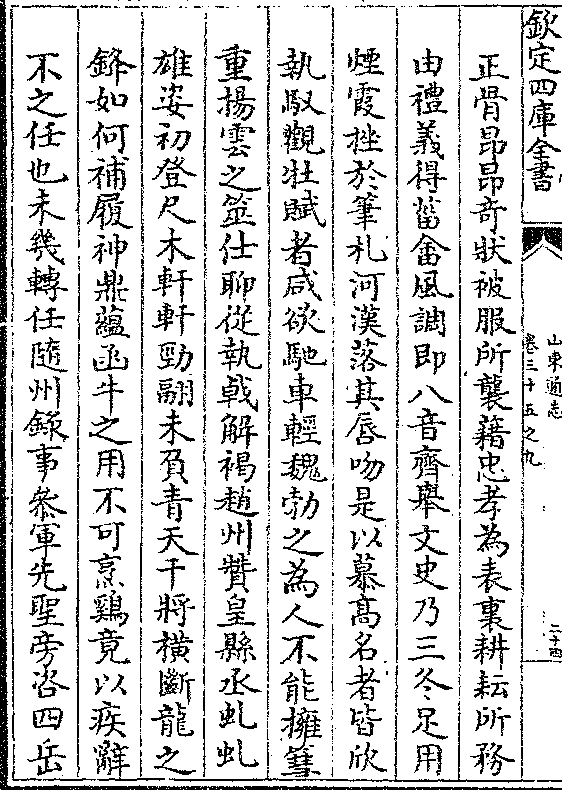 欽定四庫全書
山東通志
卷三十五之九
二十四
正骨昂昂奇狀被服所襲藉忠孝為表裏耕耘所務
由禮義得菑畬風調即八音齊舉文史乃三冬足用
煙霞挫於筆札河漢落其唇吻是以慕髙名者皆欣
執馭觀壯賦者咸欲馳車輕魏勃之為人不能擁篲
重揚雲之筮仕聊從執㦸解褐趙州贊皇縣丞虬虬
雄姿初登尺木軒軒勁翮未負青天干將横斷龍之
鋒如何補履神鼎蘊函牛之用不可烹鷄竟以疾辭
不之任也未幾轉任隨州錄事叅軍先聖旁咨四岳